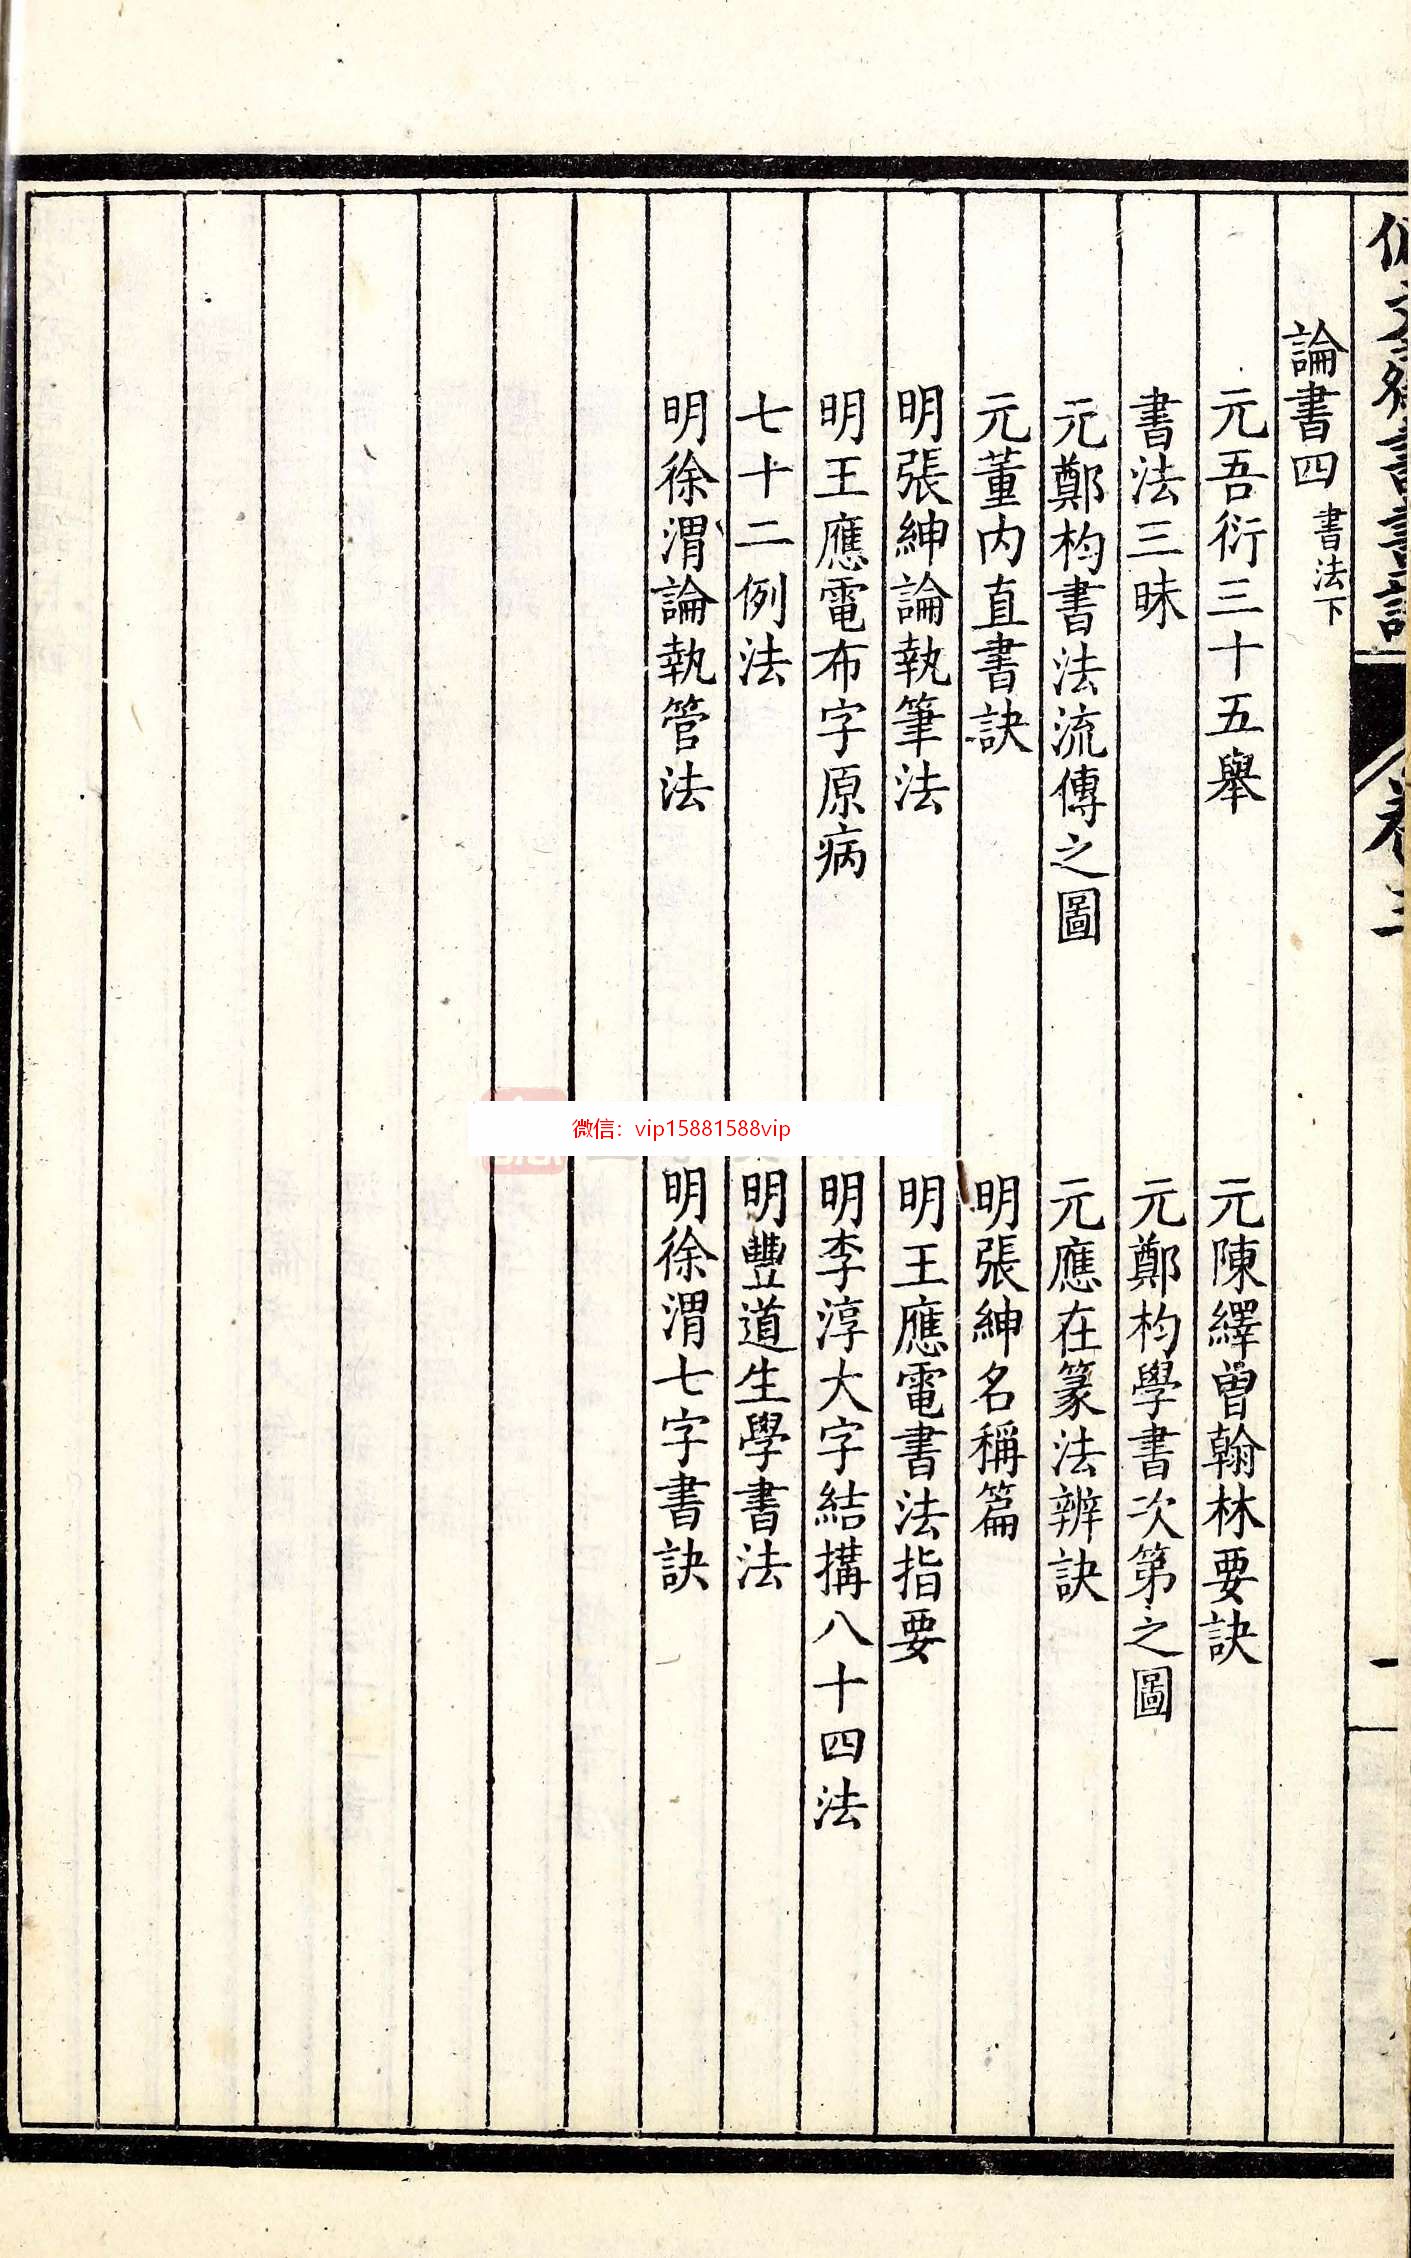 論書四 書法下
元吾衍三十五舉
元陳繹曾翰林要訣
書法三昧
元鄭杓學書次第之圖
元鄭杓書法流傳之圖
元應在篆法辨訣
元董内直書訣
明張紳名稱篇
明張紳論執筆法
明王應電書法指要
明王應電布字原病
明李淳大字結搆八十四法
七十二例法
明豐道生學書法
明徐渭論執管法
明徐渭七字書訣
卷三
一
微信：vip15881588vip